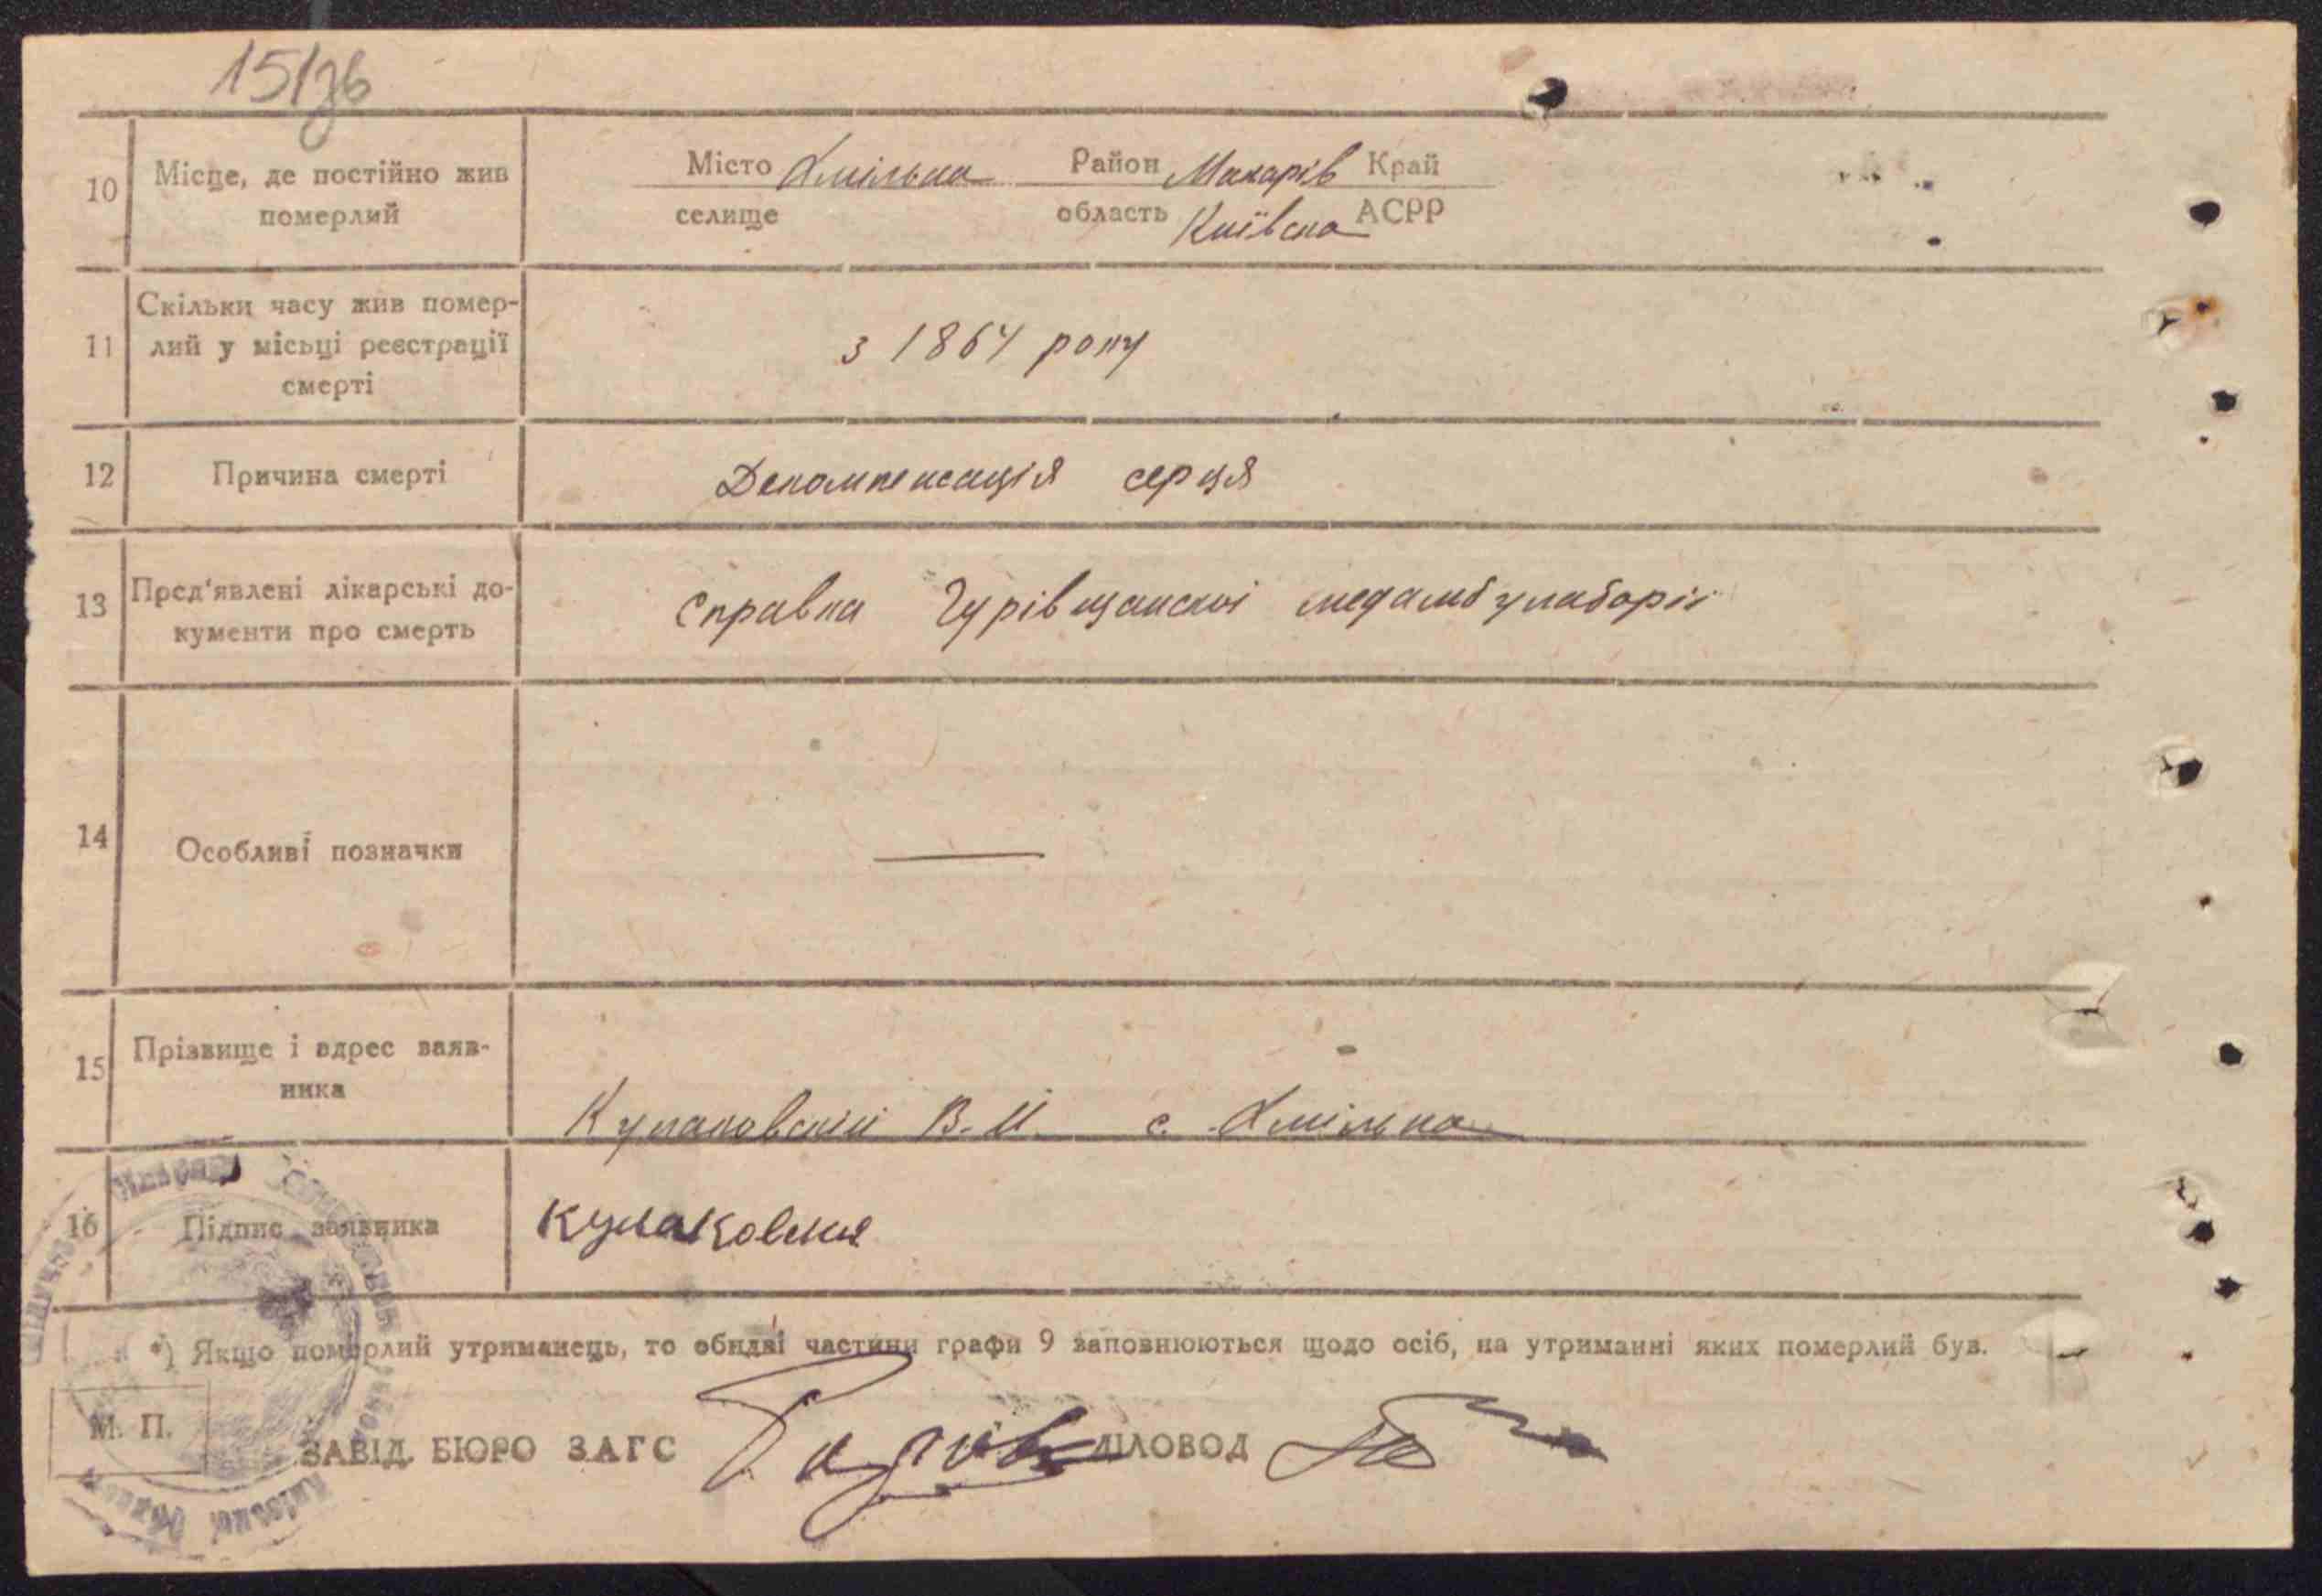 15/зб
10 Місце, де постійно жив Місто Хмільна Район Макарів Край
померлий селище область Київска АСРР
Скільки часу жив помер-
11 лий у місьці реєстрації з 1864 року
смерті
12 Причина смерті Декомпенсація серця
13 Пред'явлені лікарські до- Справка Гурівщанскої медамбулаторії
кументи про смерть
14 Особливі позначки —
15 Прізвище і адрес заяв-
ника Кулаковский В. И. с. Хмільна
16 Підпис заявника Кулаковский
*) Якщо померлий утриманець, то обидві частини графи 9 заповнюються щодо осіб, на утриманні яких померлий був.
М. П.
ЗАВІД. БЮРО ЗАГС ДІЛОВОД